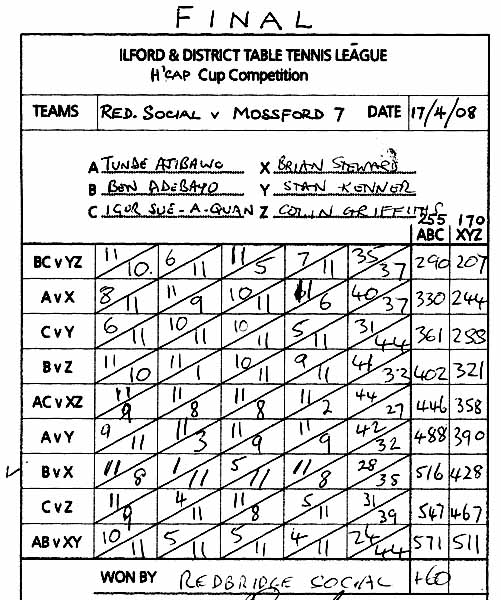 FINAL
ILFORD & DISTRICT TABLE TENNIS LEAGUE
H'CAP Cup Competition
TEAMS RED. SOCIAL V MOSSFORD 7 DATE 17/4/08
A TUNDE ATIBAWO X BRIAN STEWARD
B BEN ADEBAYO Y STAN KENNER
C IGOR SUE-A-QUAN Z COLIN GRIFFITHS
255 170
ABC XYZ
BC v YZ 11/10. 6/11 11/5 7/11 35/37 290 207
A v X 8/11 11/9 10/11 11/6 40/37 330 244
C v Y 6/11 10/11 10/11 5/11 31/44 361 288
B v Z 11/10 11/1 10/11 9/11 41/32 402 321
AC v XZ 11/9 11/8 11/8 11/2 44/27 446 358
A v Y 9/11 11/3 11/9 11/9 42/32 488 390
B v X 11/8 1/11 5/11 11/8 28/38 516 428
C v Z 11/9 4/11 11/8 5/11 31/39 547 467
AB v XY 10/11 5/11 5/11 4/11 24/44 571 511
WON BY REDBRIDGE SOCIAL +60